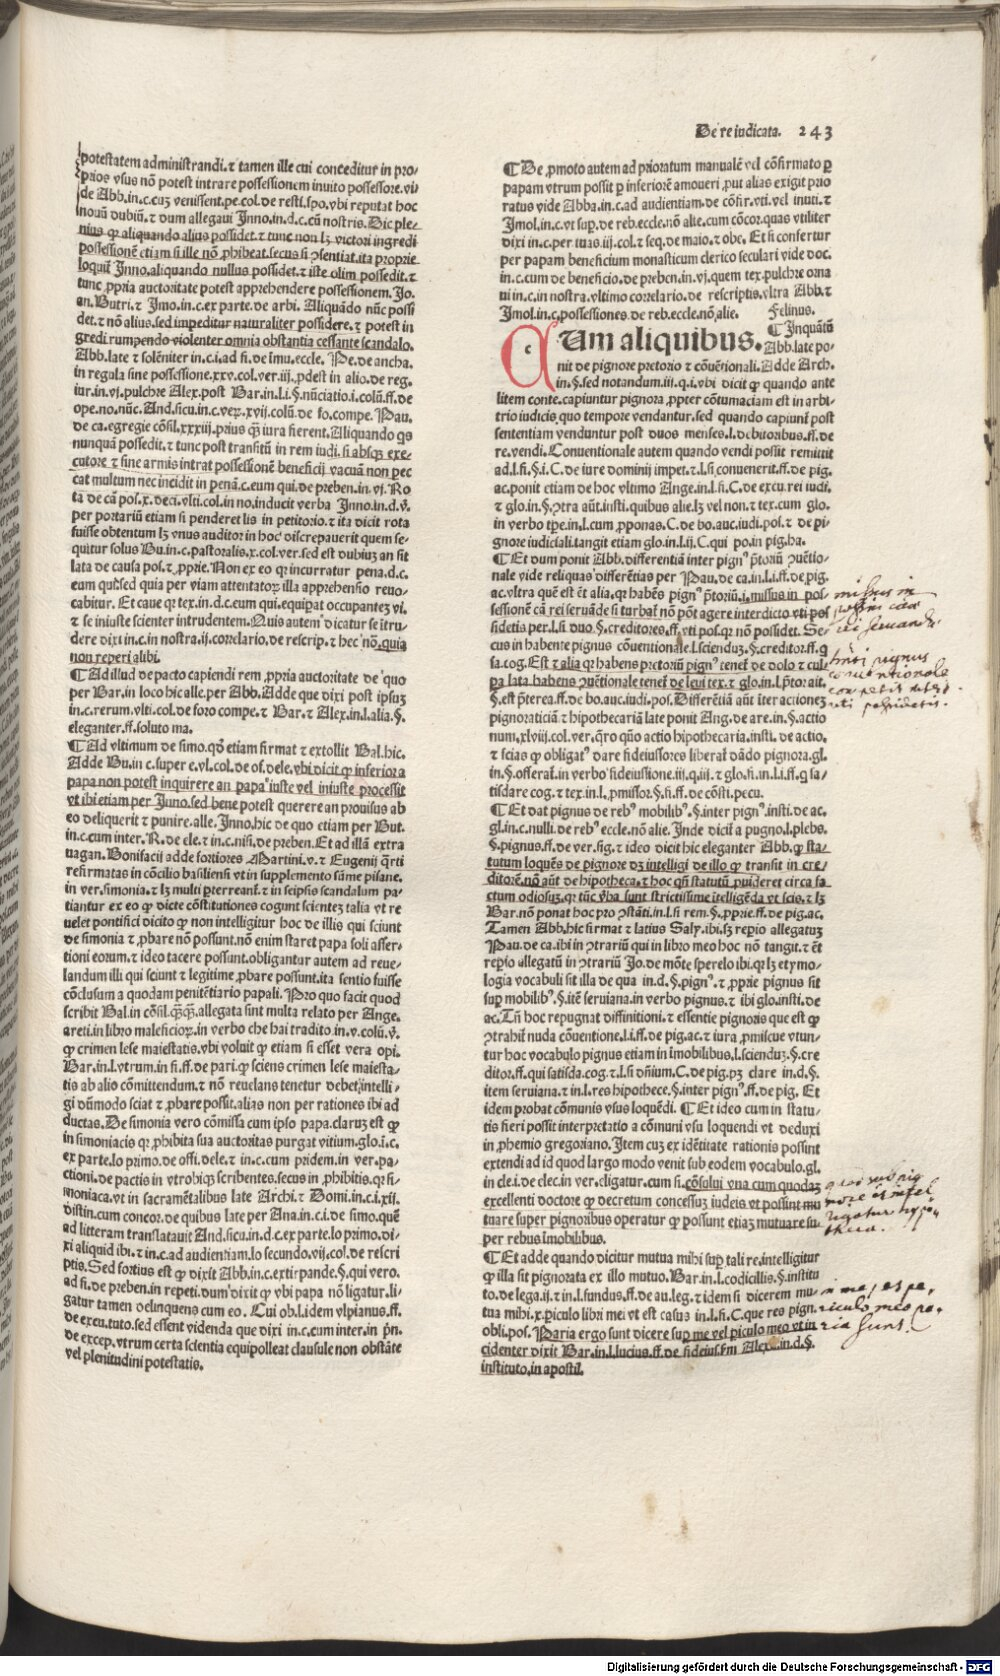 De re iudicata. 243
potestatem administrandi. ⁊ tamen ille cui conceditur in pro-
prios vsus nō potest intrare possessionem inuito possessore. vi
de Abb. in. c. cuȝ venissent. pe. col. de resti. spo. vbi reputat hoc
nouū dubiū. ⁊ dum allegaui Inno. in. d. c. cū nostris. Dic ple-
nius ꝙ aliquando alius possidet. ⁊ tunc non lȝ victori ingredi
possessionē etiam si ille nō ꝓhibeat. secus si ꝯsentiat. ita proprie
loquit̄ Inno. aliquando nullus possidet. ⁊ iste olim possedit. ⁊
tunc ꝓpria auctoritate potest apprehendere possessionem. Jo.
an. Butri. ⁊ Imo. in. c. ex parte. de arbi. Aliquādo nūc possi
det. ⁊ nō alius. sed impeditur naturaliter possidere. ⁊ potest in
gredi rumpendo violenter omnia obstantia cessante scandalo.
Abb. late ⁊ solēniter in. c. i. ad fi. de īmu. eccle. Pe. de ancha.
in regula sine possessione. xxv. col. ver. iij. ꝓdest in alio. de reg.
iur. in. vj. pulchre Alex. post Bar. in. l. i. §. nūciatio. i. colū. ff. de
ope. no. nūc. And. sicu. in. c. veȝ. xvij. colū. de fo. compe. Pau.
de ca. egregie cōsil. xxxiij. prius qȝ iura fierent. Aliquando qs
nunquā possedit. ⁊ tunc post transitū in rem iudi. si absqȝ exe-
cutore ⁊ sine armis intrat possessionē beneficij vacuā non pec
cat multum nec incidit in penā. c. eum qui. de preben. in. vj. Ro
ta de cā pos. x. deci. vlti. col. in no. inducit verba Inno. in. d. v̄.
per portariū etiam si penderet lis in petitorio. ⁊ ita dicit rota
fuisse obtentum lȝ vnus auditor in hoc discrepauerit quem se-
quitur solus Bu. in. c. pastoralis. x. col. ver. sed est dubiuȝ an sit
lata de causa pos. ⁊ ꝓprie. Non ex eo qꝛ incurratur pena. d. c.
eam quȩsed quia per viam attentatoꝝ illa apprehensio reuo-
cabitur. Et caue qꝛ tex. in. d. c. eum qui. equipat occupanteȝ vi.
⁊ se iniuste scienter intrudentem. Quis autem dicatur se ītru-
dere dixi in. c. in nostra. ij. correlario. de rescrip. ⁊ hec nō. quia
non reperi alibi.
¶ Ad illud de pacto capiendi rem ꝓpria auctoritate de quo
per Bar. in loco hic alle. per Abb. Adde que dixi post ipsuȝ
in. c. rerum. vlti. col. de foro compe. ⁊ Bar. ⁊ Alex. in. l. alia. §.
eleganter. ff. soluto ma.
¶ Ad vltimum de simo. qd̄ etiam firmat ⁊ extollit Bal. hic.
Adde Bu. in. c. super e. vl. col. de of. dele. vbi dicit ꝙ inferiora
papa non potest inquirere an papa iuste vel iniuste processit
vt ibi etiam per Inno. sed bene potest querere an prouisus ab
eo deliquerit ⁊ punire. alle. Inno. hic de quo etiam per But.
in. c. cum inter. R. de ele. ⁊ in. c. nisi. de preben. Et ad illā extra
uagan. Bonifacij adde fortiores Martini. v. ⁊ Eugenij q̄rti
refirmatas in cōcilio basiliensi vt in supplemento sūme pisane.
in ver. simonia. ⁊ lȝ multi ꝑterreant̄. ⁊ in seipsis scandalum pa-
tiantur ex eo ꝙ dicte cōstitutiones cogunt scienteȝ talia vt re
uelet pontifici dicito ꝙ non intelligitur hoc de illis qui sciunt
de simonia ⁊ ꝓbare nō possunt. nō enim staret papa soli asser-
tioni eorum. ⁊ ideo tacere possunt. obligantur autem ad reue-
landum illi qui sciunt ⁊ legitime ꝓbare possunt. ita sentio fuisse
cōclusum a quodam penitētiario papali. Pro quo facit quod
scribit Bal. in cōsil. allegata sunt multa relato per Ange.
areti. in libro maleficioꝝ. in verbo che hai tradito. in. v. colū. v̄.
ꝙ crimen lese maiestatis. vbi voluit ꝙ etiam si esset vera opi.
Bar. in. l. vtrum. in fi. ff. de pari. ꝙ sciens crimen lese maiesta-
tis ab alio cōmittendum. ⁊ nō reuelans tenetur debet ītelli-
gi dūmodo sciat ⁊ ꝓbare possit. alias non per rationes ibi ad
ductas. De simonia vero cōmissa cum ipso papa. claruȝ est ꝙ
in simoniacis qꝛ ꝓhibita sua auctoritas purgat vitium. glo. i. c.
ex parte. lo primo. de offi. dele. ⁊ in. c. cum pridem. in ver. pa-
ctioni. de pactis in vtrobiqȝ scribentes. secus in ꝓhibitis. qꝛ si-
moniaca. vt in sacramētalibus late Archi. ⁊ Domi. in c. i. xij.
distin. cum concor. de quibus late per Ana. in. c. i. de simo. quē
ad litteram translatauit And. sicu. in. d. c. ex parte. lo primo. di-
xi aliquid ibi. ⁊ in. c. ad audientiam. lo secundo. vij. col. de rescri
ptis. Sed fortius est ꝙ dixit Abb. in. c. extirpande. §. qui vero.
ad fi. de preben. in repeti. dum dixit ꝙ vbi papa nō ligatur. li-
gatur tamen delinquens cum eo. Cui ob. l. idem vlpianus. ff.
de excu. tuto. sed essent videnda que dixi in. c. cum inter. in pn̄.
de excep. vtrum certa scientia equipolleat clausule non obstāte
vel plenitudini potestatis.
¶ De ꝓmoto autem ad prioratum manualē vel cōfirmato ꝑ
papam vtrum possit ꝑ inferiorē amoueri ꝓut alias exigit prio
ratus vide Abba. in. c. ad audientiam. de cōfir. vti. vel inuti. ⁊
Imol. in. c. vt sup. de reb. eccle. nō alie. cum cōcor. quas vtiliter
dixi in. c. per tuas. iij. col. ⁊ seq. de maio. ⁊ obe. Et si confertur
per papam beneficium monasticum clerico seculari vide doc.
in. c. cum de beneficio. de preben. in. vj. quem tex. pulchre orna
ui in. c. in nostra. vltimo correlario. de rescriptis. vltra Abb. ⁊
Imol. in. c. possessiones. de reb. eccle. nō. alie. Felinus.
c Um aliquibus. ¶ Inquātū
Abb. late po-
nit de pignore pretorio ⁊ cōuētionali. Adde Arch.
in. §. sed notandum. iij. q. i. vbi dicit ꝙ quando ante
litem conte. capiuntur pignora ꝓpter cōtumaciam est in arbi-
trio iudicis quo tempore vendantur. sed quando capiunt̄ post
sententiam venduntur post duos menses. l. debitoribus. ff. de
re. vendi. Conuentionale autem quando vendi possit remittit
ad. l. fi. §. i. C. de iure dominij impet. ⁊. l. si conuenerit. ff. de pig.
ac. ponit etiam de hoc vltimo Ange. in. l. fi. C. de excu. rei iudi.
⁊ glo. in. §. ꝯtra aūt. insti. quibus alie. lȝ vel non. ⁊ tex. cum glo.
in verbo tꝑe. in. l. cum ꝓponas. C. de bo. auc. iudi. pos. ⁊ de pi-
gnore iudiciali. tangit etiam glo. in. l. ij. C. qui po. in pig. ha.
¶ Et dum ponit Abb. differentiā inter pignꝰ p̄toriū ⁊ ꝯuētio-
nale vide reliquas differētias per Pau. de ca. in. l. i. ff. de pig.
ac. vltra quē est ēt alia. qꝛ habēs pignꝰ p̄toriū. i. missus in pos-
sessionē cā rei seruāde si turbat̄ nō pōt agere interdicto vti pos
sidetis per. l. si duo. §. creditores. ff. vti pos. qꝛ non possidet. Se
cus in habente pignus cōuentionale. l. sciendū. §. creditor. ff. q
sa. cog. Est ⁊ alia qꝛ habens pretoriū pignꝰ tenet̄ de dolo ⁊ cul
pa lata. habens ꝯuētionale tenet̄ de leui tex. ⁊ glo. in. l. p̄tor ait.
§. est p̄terea. ff. de bo. auc. iudi. pos. Differētiā aūt iter actioneȝ
pignoraticiā ⁊ hypothecariā late ponit Ang. de are. in. §. actio
num. xlviij. col. ver. q̄ro quo actio hypothecaria. insti. de actio.
⁊ scias ꝙ obligatꝰ dare fideiussores liberat̄ dādo pignora. gl.
in. §. offerat̄. in verbo fideiussione. iij. q. iij. ⁊ glo. fi. in. l. i. ff. q sa-
tisdare cog. ⁊ tex. in. l. ꝓmissor. §. fi. ff. de cōsti. pecu.
¶ Et dat pignus de rebꝰ mobilibꝰ. §. inter pignꝰ. insti. de ac.
gl. in. c. nulli. de rebꝰ eccle. nō alie. Inde dicit̄ a pugno. l. plebs.
§. pignus. ff. de ver. sig. ⁊ ideo dicit hic eleganter Abb. ꝙ sta-
tutum loquēs de pignore dȝ intelligi de illo ꝙ transit in cre-
ditorē. nō aūt de hipotheca. ⁊ hoc qn̄ statutū ꝓuideret circa fa
ctum odiosuȝ. qꝛ tūc v̄ba sunt strictissime itelligēda vt scis. ⁊ lȝ
Bar. nō ponat hoc pro ꝯstāti. in. l. si rem. §. ꝓprie. ff. de pig. ac.
Tamen Abb. hic firmat ⁊ latius Saly. ibi. sȝ reꝑio allegatuȝ
Pau. de ca. ibi in ꝯtrariū qui in libro meo hoc nō tangit. ⁊ ēt
reꝑio allegatū in ꝯtrariū Jo. de mōte sperelo ibi. qꝛ lȝ etymo-
logia vocabuli sit illa de qua in. d. §. pignꝰ. ⁊ ꝓprie pignus sit
suꝑ mobilibꝰ. §. itē seruiana. in verbo pignus. ⁊ ibi glo. insti. de
ac. Tn̄ hoc repugnat diffinitioni. ⁊ essentie pignoris que est ꝙ
ꝯtrahit̄ nuda cōuentione. l. i. ff. de pig. ac. ⁊ iura ꝓmiscue vtun-
tur hoc vocabulo pignus etiam in īmobilibus. l. sciendū. §. cre
ditor. ff. qui satisda. cog. ⁊. l. si dn̄ium. C. de pig. pȝ clare in. d. §.
item seruiana. ⁊ in. l. res hipothece. §. inter pignꝰ. ff. de pig. Et
idem probat cōmunis vsus loquēdi. ¶ Et ideo cum in statu-
tis fieri possit interpretatio a cōmuni vsu loquendi vt deduxi
in ꝓhemio gregoriano. Item cuȝ ex idētitate rationis possint
extendi ad id quod largo modo venit sub eodem vocabulo. gl.
in cle. i. de elec. in ver. cligatur. cum si. cōsului vna cum quodaȝ
excellenti doctore ꝙ decretum concessuȝ iudeis vt possint mu
tuare super pignoribus operatur ꝙ possunt etiaȝ mutuare su
per rebus īmobilibus.
¶ Et adde quando dicitur mutua mihi suꝑ tali re. intelligitur
ꝙ illa sit pignorata ex illo mutuo. Bar. in. l. codicillis. §. institu
to. de lega. ij. ⁊ in. l. fundus. ff. de au. leg. ⁊ idem si dicerem mu
tua mihi. x. ꝑiculo libri mei vt est casus in. l. fi. C. que res pign.
obli. pos. Paria ergo sunt dicere suꝑ me vel ꝑiculo meo vt in
cidenter dixit Bar. in. l. lucius. ff. de fideius. fm̄ Alex. in. d. §.
instituto. in apostil.
missus in
possessionem causa
rei servandae
pignus
conventionale
competit
uti possidetis.
quod sub pig
nore intel
ligatur hypo
theca.
in me, et pe
riculo meo pa
ria sunt.
Digitalisierung gefördert durch die Deutsche Forschungsgemeinschaft - DFG